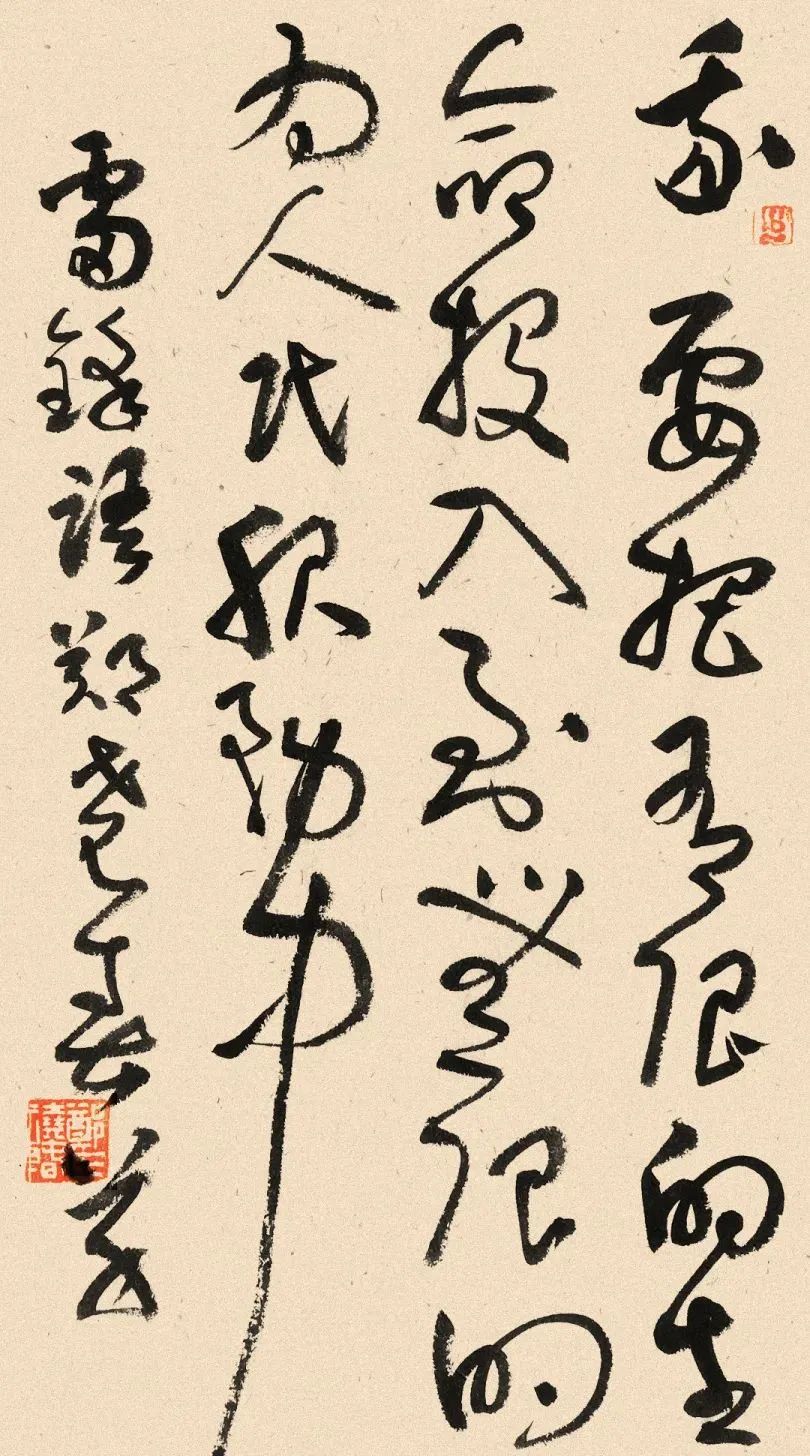 我要把有限的生
命投入到無限的
为人民服務中
雷鋒語鄭